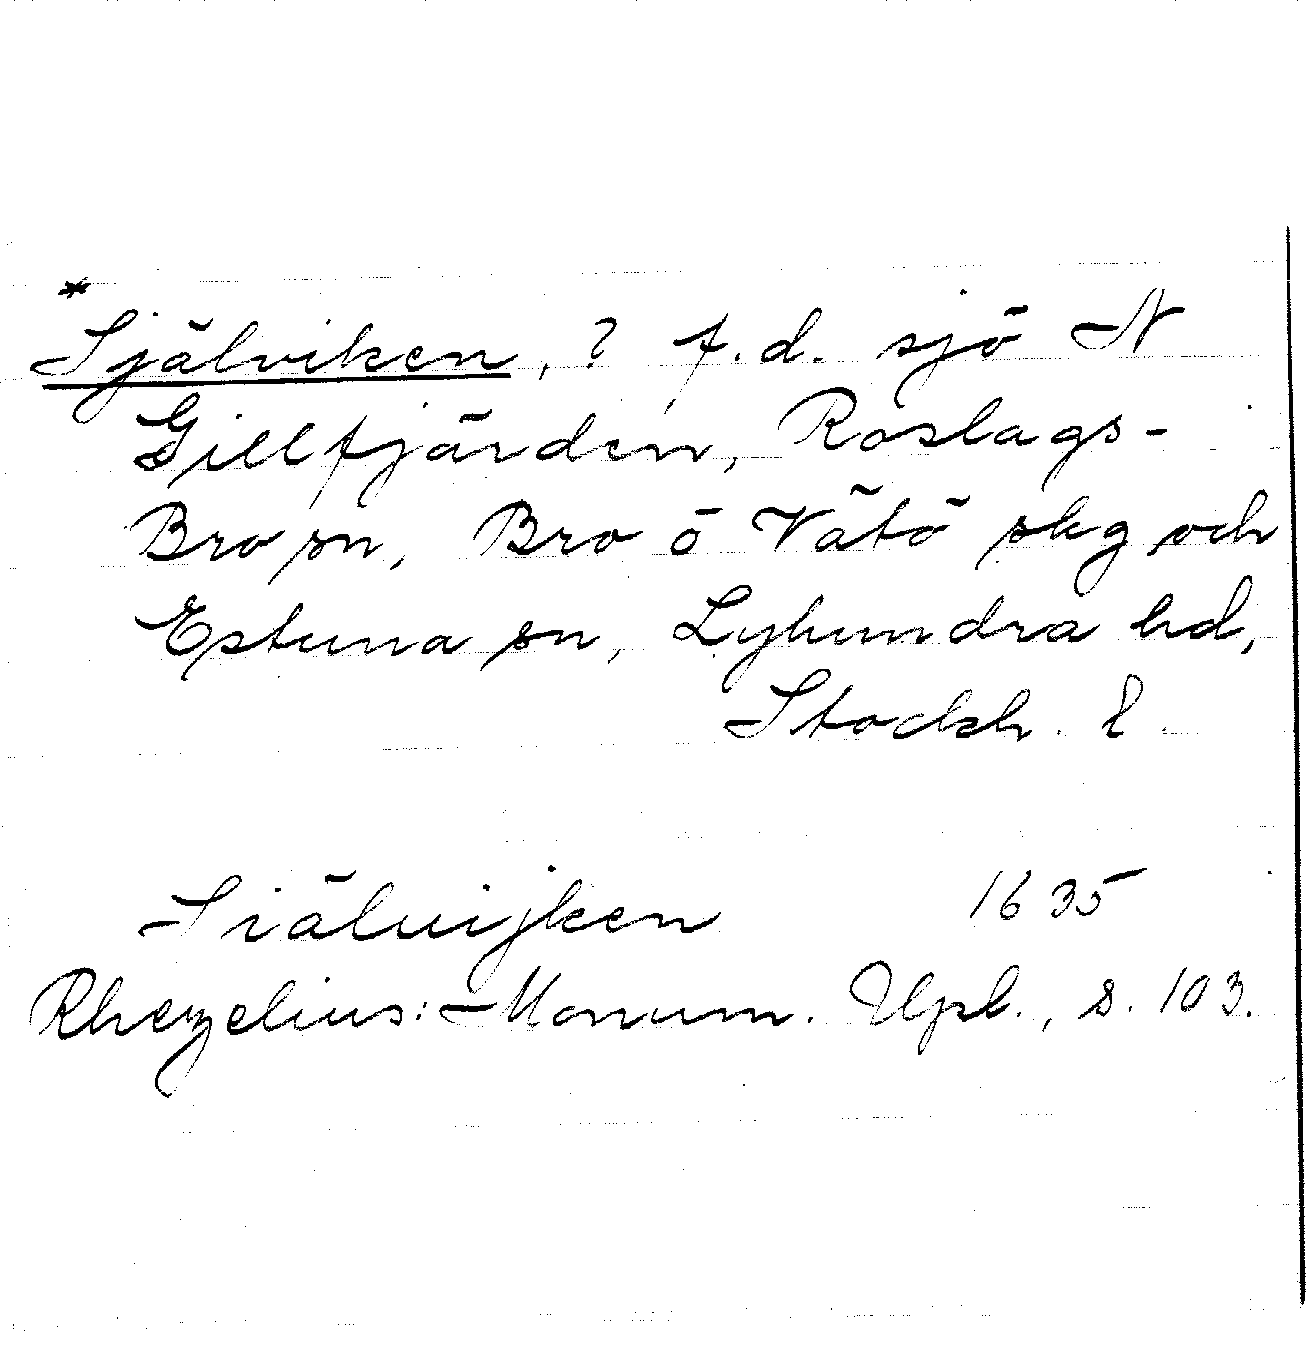 *
Själviken, ? f.d. sjö N
Gillfjärden, Roslags-
Bro sn, Bro o Vätö skg och
Estuna sn, Lyhundra hd,
Stockh. l.
Siäluijken 1635
Rhezelius: Monum. Upl., s. 103.